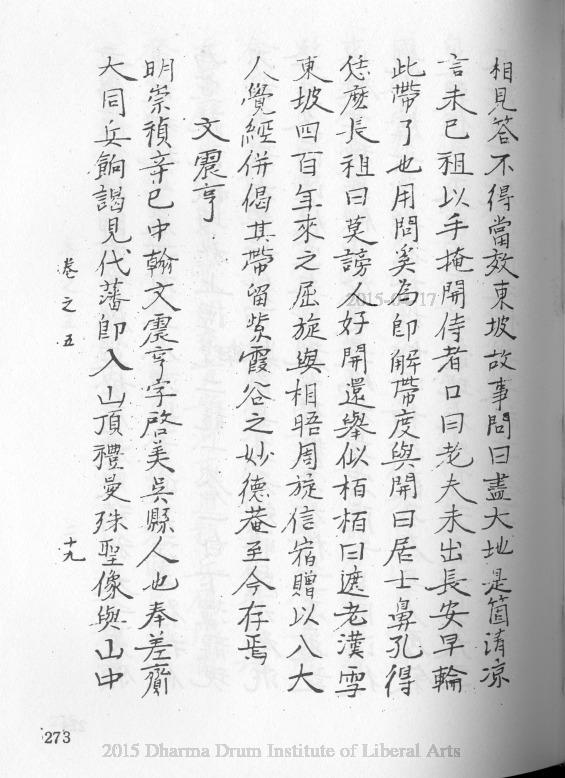 相見答不得當效東坡故事問曰盡大地是箇清凉
言未已祖以手掩開侍者口曰老夫未出長安早輸
此帶了也用問奚為即解帶度與開曰居士鼻孔得
恁麽長祖曰莫謗人好開還舉似栢栢曰遮老漢雪
東坡四百年來之屈旋與相晤周旋信宿贈以八大
人覺經併偈其帶留紫霞谷之妙德菴至今存焉
文震亨
明崇禎辛巳中翰文震亨字啓美吳縣人也奉差齎
大同兵餉謁見代藩即入山頂禮曼殊聖像與山中
卷之五
十九
273
2015-03-17
2015 Dharma Drum Institute of Liberal Arts